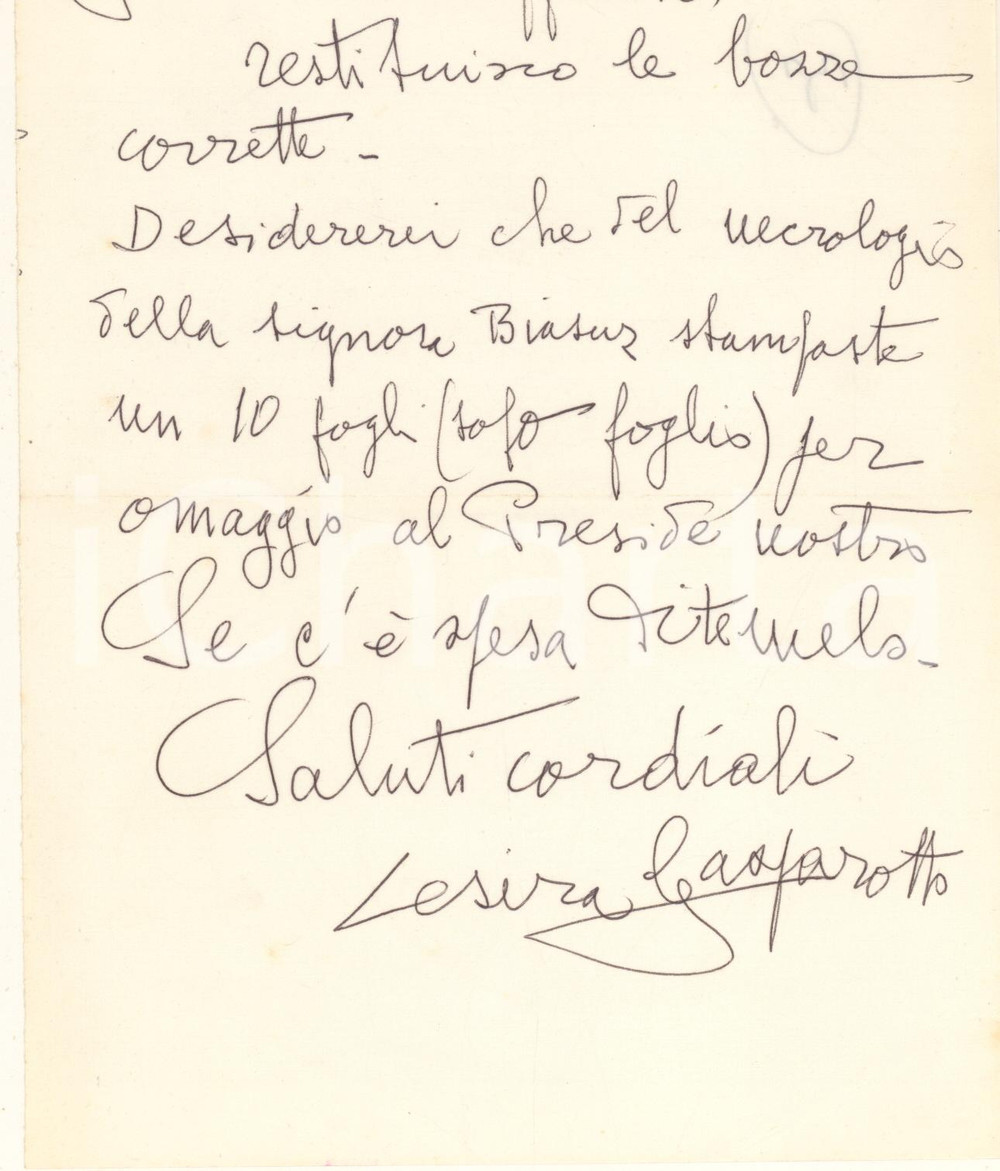 restituisco le bozze
corrette -
Desidererei che del necrologio
della signora Biasuz stampaste
un 10 fogli (solo foglio) per
omaggio al Preside nostro
Se c'è spesa ditemelo -
Saluti cordiali
Cesira Gasparotto